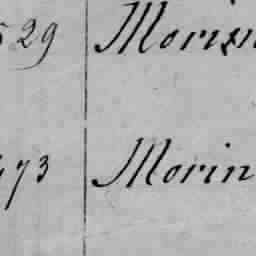 529 Morin
73 Morin